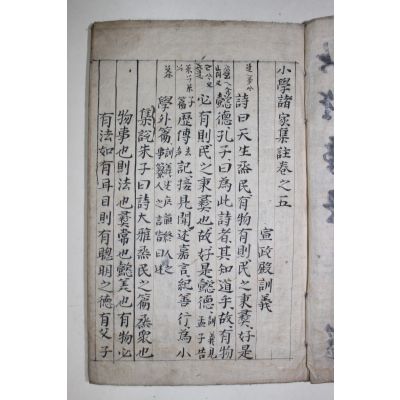 小學諸家集註卷之五
宣政殿訓義
詩曰天生烝民有物有則民之秉彝好是
懿德孔子曰為此詩者其知道乎故有物
必有則民之秉彝也故好是懿德訓義見孟子告
歷傳記接見聞述嘉言紀善行為小
學外篇
集說朱子曰詩大雅烝民之篇烝衆也
物事也則法也彝常也懿美也有物必
有法如有耳目則有聰明之德有父子